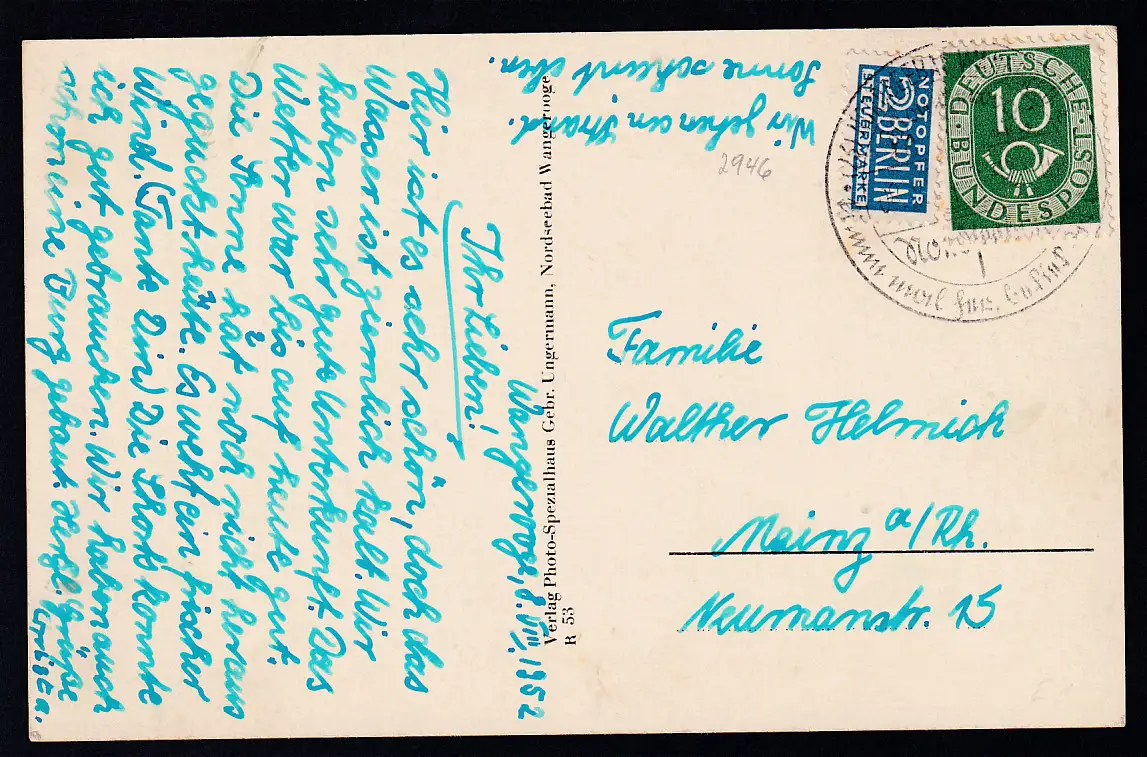 Wangerooge, 8. VIII. 1952
Ihr Lieben!
Hier ist es sehr schön, doch das
Wasser ist ziemlich kalt. Wir
haben sehr gute Unterkunft. Das
Wetter war bis auf heute gut.
Die Sonne hat noch nicht heraus
geguckt heute. Es weht ein frischer
Wind. (Tante Din) Die Shorts konnte
ich gut gebrauchen. Wir haben auch
schon eine Burg gebaut. Herzl. Grüße
Wir gehen an Strand.
Sonne scheint eben.
Verlag Photo-Spezialhaus Gebr. Ungermann, Nordseebad Wangerooge
R 53
2946
NOTOPFER
2 BERLIN
STEUERMARKE
DEUTSCHE
10
BUNDESPOST
Familie
Walther Helmich
Mainz a/Rh.
Neumanstr. 15